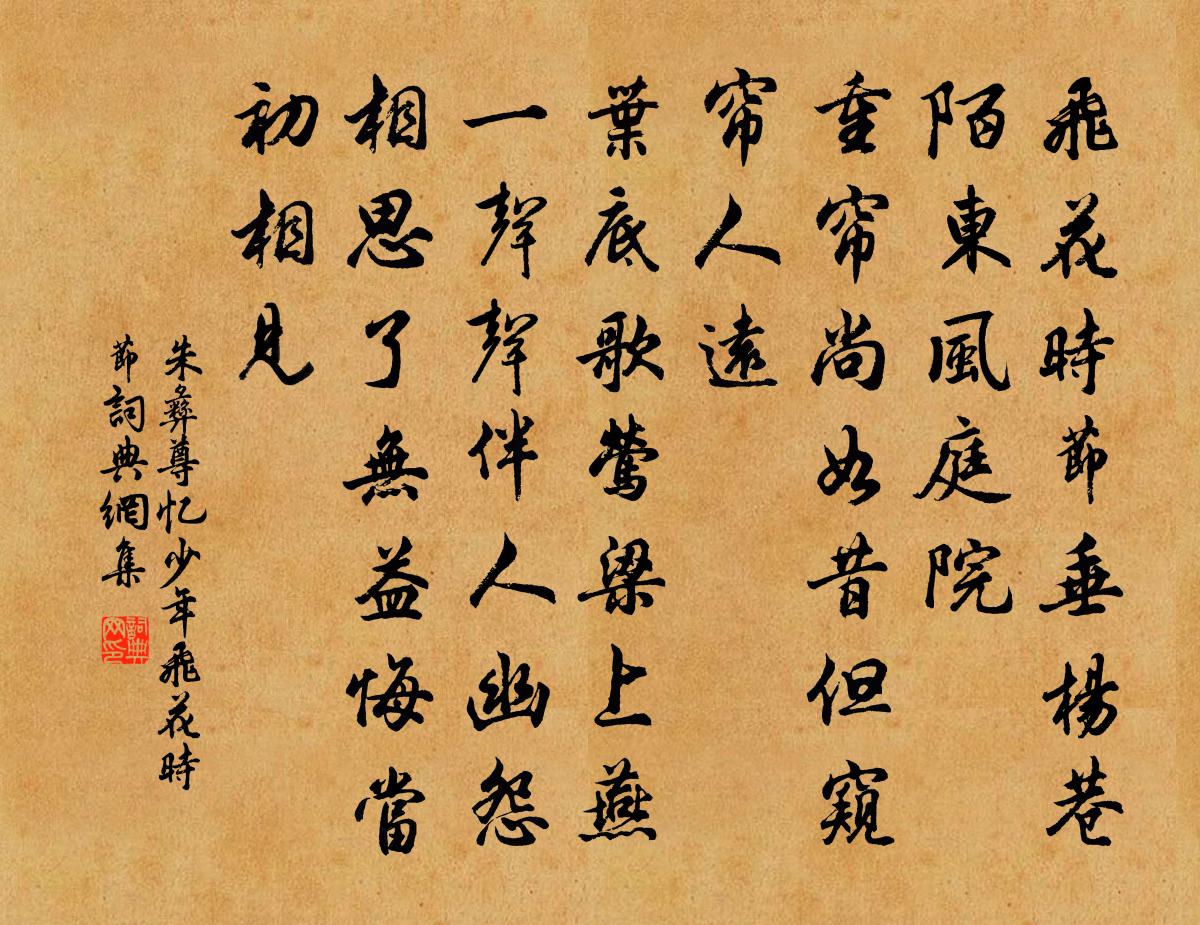 飛花時節垂楊巷
陌東風庭院
重帘尚如昔但窺
帘人遠
葉底歌鶯梁上燕
一聲聲伴人幽怨
相思了無益悔當
初相見
朱彝尊忆少年飛花時
節詞典網集
詞典网印